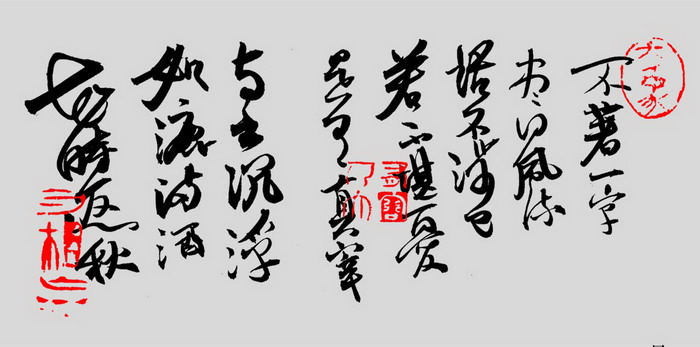 不著一字
尽得風流
语不涉己
若不堪憂
是有真宰
与之沉浮
如渌满酒
花時返秋